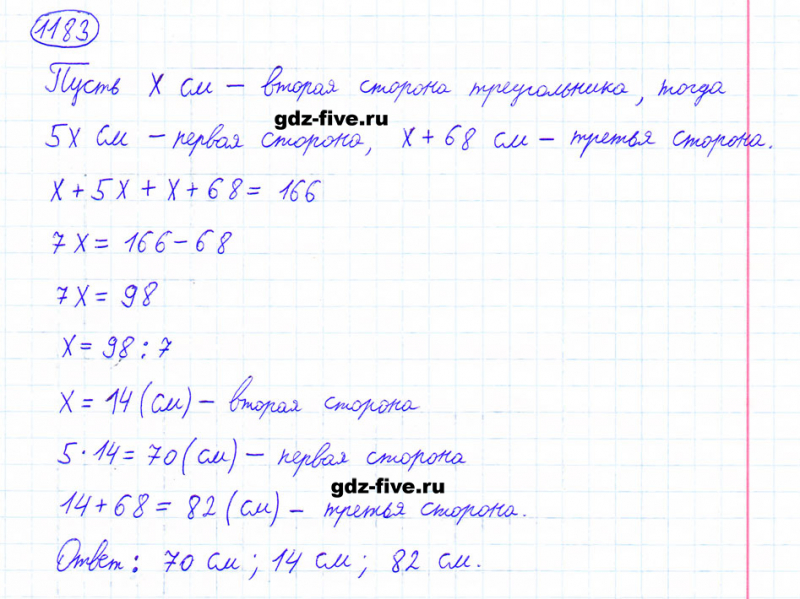 1183
Пусть x см – вторая сторона треугольника, тогда
gdz-five.ru
5x см – первая сторона, x + 68 см – третья сторона.
x + 5x + x + 68 = 166
7x = 166 – 68
7x = 98
x = 98 : 7
x = 14 (см) – вторая сторона
5 · 14 = 70 (см) – первая сторона
gdz-five.ru
14 + 68 = 82 (см) – третья сторона.
Ответ: 70 см; 14 см; 82 см.